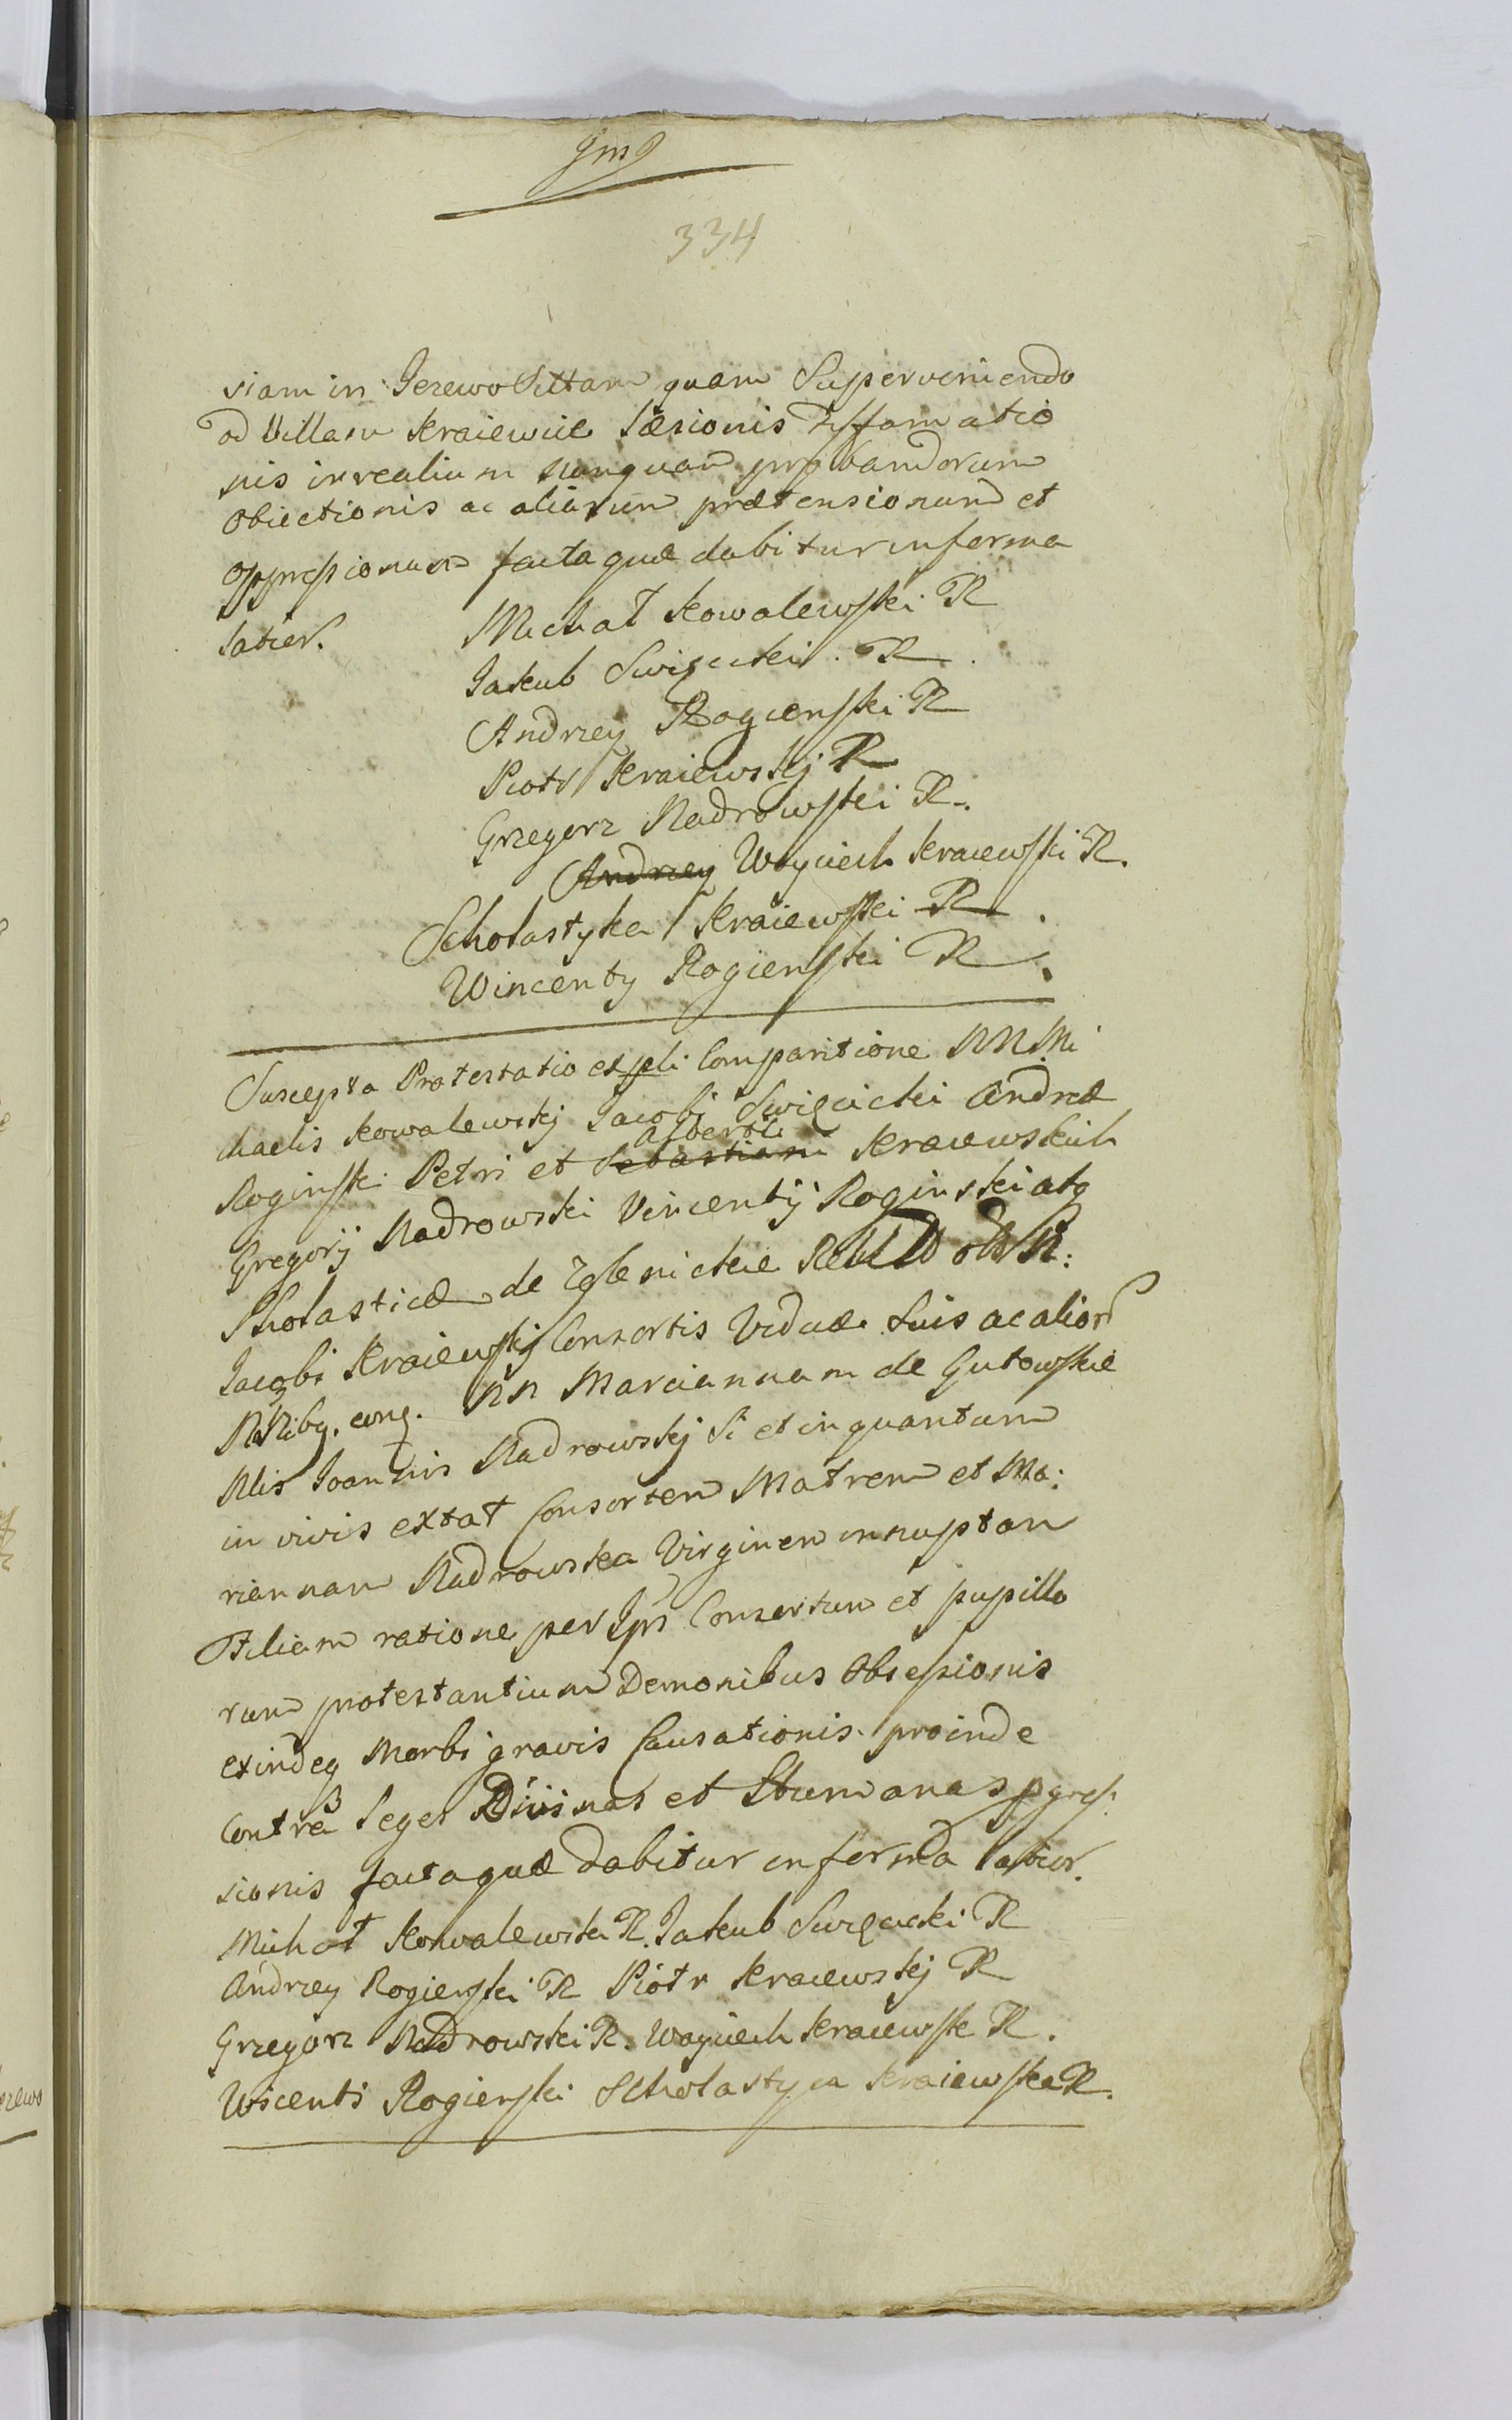 334
siam in Jerewo Sittam quam Superveniendo
ad Villam Kraiewice læsionis diffamatio
nis irrealium nunquam probandorum
Obiectionis ac aliarum prætensionum et
oppressionum facta quæ dabitur in forma
latior.
Michał Kowalewski R
Jakub Swięcicki R
Andrzey Rogienski R
Piotr Kraiewskj R
Grzegorz Nadrowski R.
Andrzey Woyciech Kraiewski R.
Scholastyka Kraiewski R.
Wincenty Rogienski R.
Suscepta Protestatio ex psli Comparitione NN. Mi
chaelis Kowalewskj Jacobi Swięcicki Andreæ
Alberti
Roginski Petri et Sebastiani Kraiewskich
Gregorij Nadrowski Vincentij Roginski atq
Scholasticæ de Zglenickie
Jacobi Kraiewskj Consortis Viduæ Suis ac alior
NN Mariannam de Gutowskie
Nlis Joannis Nadrowskj Si et in quantum
in vivis extat Consortem Matrem et Ma:
riannam Nadrowska Virginem innuptam
Filiam ratione per Ips Consortum et pupillo
rum protestantium Demonibus Obsessionis
exindeq Morbi gravis Causationis proinde
Contra Leges Divinas et Humanas pgres
sionis facta quæ dabitur in forma latior.
Michał Kowalewski R. Jakub Swięcicki R
Andrzey Rogienski R Piotr Kraiewskj R
Grzegorz Nadrowski R. Woyciech Kraiewski R.
Wicenti Rogienski Scholastyca Kraiewska R.